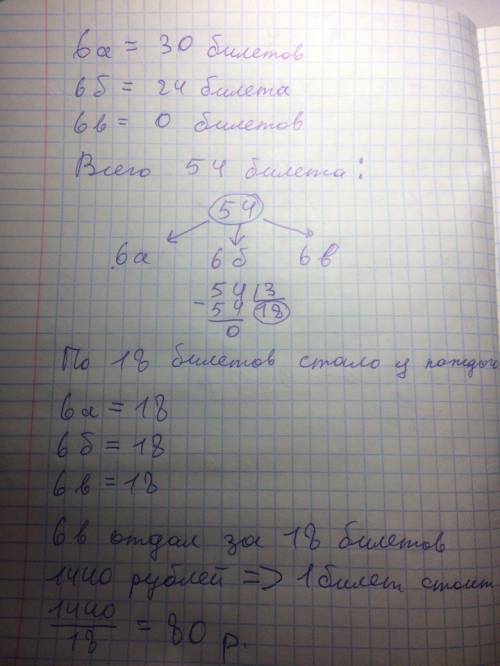 6а = 30 билетов
6б = 24 билета
6в = 0 билетов
Всего 54 билета:
54
6а 6б 6в
54 | 3
- 54 18
0
По 18 билетов стало у каждого
6а = 18
6б = 18
6в = 18
6в отдал за 18 билетов
1440 рублей => 1 билет стоит
1440
18 = 80 р.